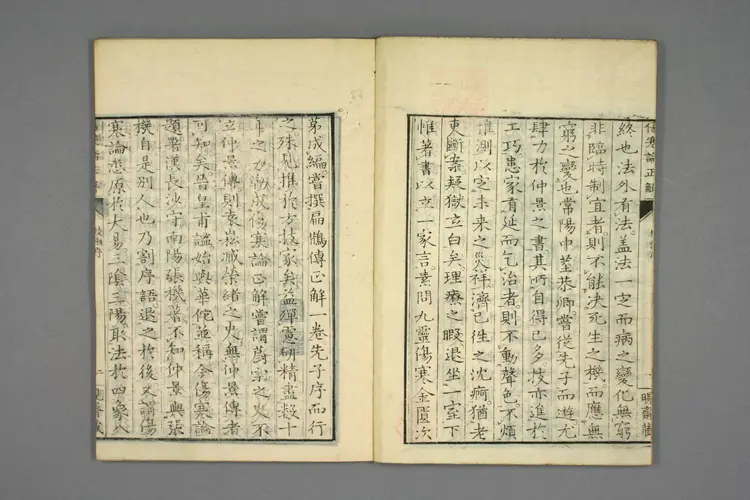 終也法外有法蓋法一定而病之變化無窮
非臨時制宜者則不能决死生之機而應無
窮之變也常陽中莖恭卿嘗從先子而遊尤
肆力於仲景之書其所自得已多技亦進於
工巧患家有延而乞治者則不動聲色不煩
惟測以定未来之災祥濟已往之沈痾猶老
吏斷案疑獄立白矣理療之暇退坐一室下
惟著書以立一家言素問九靈傷寒金匱次
苐成編嘗撰扁鵲傳正解一卷先子序而行
之殊見推於方技家矣益殫慮研精盡数十
年之力勒成傷寒論正解嘗謂蔚宗之史不
立仲景傳則袁崧臧榮緒之史無仲景傳者
可知矣晉皇甫謐始與華佗並稱今傷寒論
題署漢長沙守南陽張機著不知仲景與張
機自是别人也乃割序語退之於後又謂傷
寒論悉原於大易三陰三陽取法於四象八
傷寒論正解